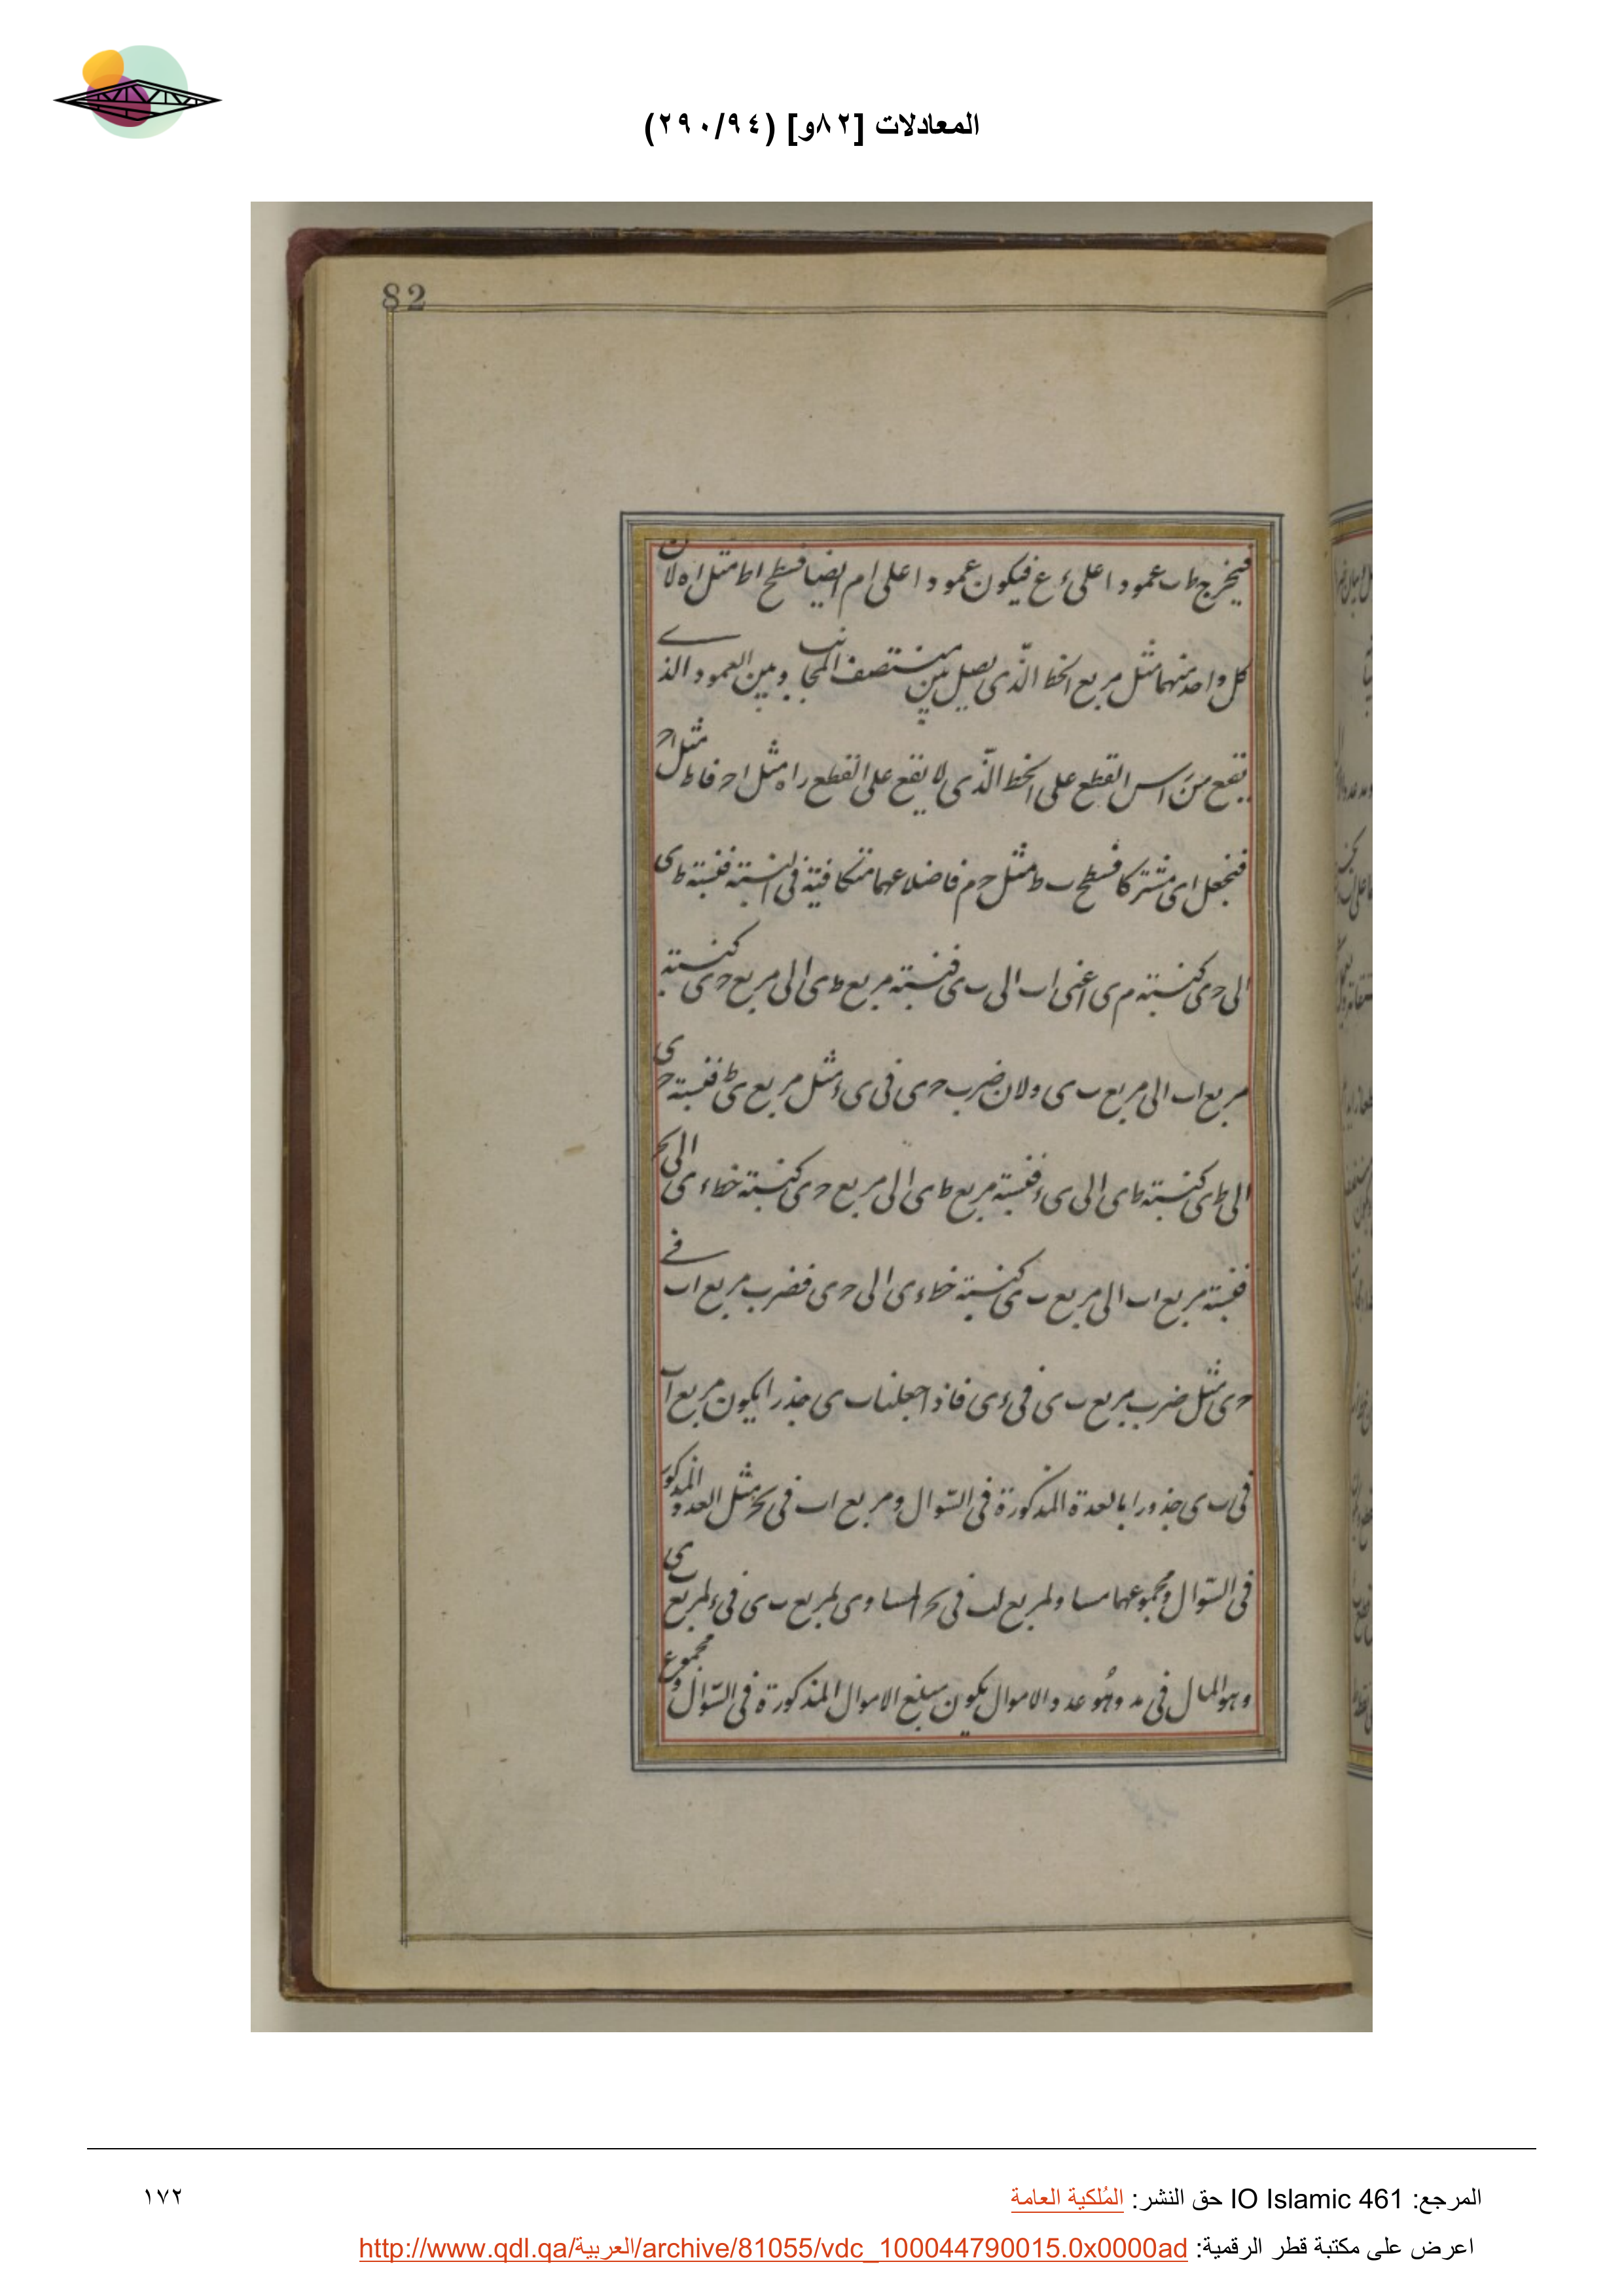 المعادلات [٨٢و] (٢٩٠/٩٤)
82
فيخرج ط ب عمودا على ء ع فيكون عمودا على ام ايضا فسطح اط مثل اه لان
كل واحد منهما مثل مربع الخط الذى يصل بين منتصف المجانب وبين العمود الذى
يقع من راس القطع على الخط الذى لا يقع على القطع راه مثل اح فاط مثل اح
فنجعل اى مشتركا فسطح ب ط مثل ح م فاضلاعهما متكافية فى النسبة فنسبة ط ى
الى ح ى كنسبة م ى اعنى اب الى ب ى فنسبة مربع ط ى الى مربع ح ى كنسبة
مربع اب الى مربع ب ى ولان ضرب ح ى فى ى ء مثل مربع ى ط فنسبة ح ى
الى ط ى كنسبة ط ى الى ى ء فنسبة مربع ط ى الى مربع ح ى كنسبة خط ء ى الى ى ح
فنسبة مربع اب الى مربع ب ى كنسبة خط ء ى الى ح ى فضرب مربع اب فى
ح ى مثل ضرب مربع ب ى فى ء ى فاذا جعلنا ب ى جذرا يكون مربع اب
فى ب ى جذورا بالعدة المذكورة فى السوال ومربع اب فى ب ح مثل العدد المذكور
فى السوال ومجموعهما مساو لمربع اب فى ى ح المساوى لمربع ب ى فى ء ى لمربع
وهو المال فى وهو عدد الاموال يكون مبلغ الاموال المذكورة فى السوال ومجموع
المرجع: IO Islamic 461 حق النشر: المُلكية العامة
١٧٢
اعرض على مكتبة قطر الرقمية: http://www.qdl.qa/العربية/archive/81055/vdc_100044790015.0x0000ad